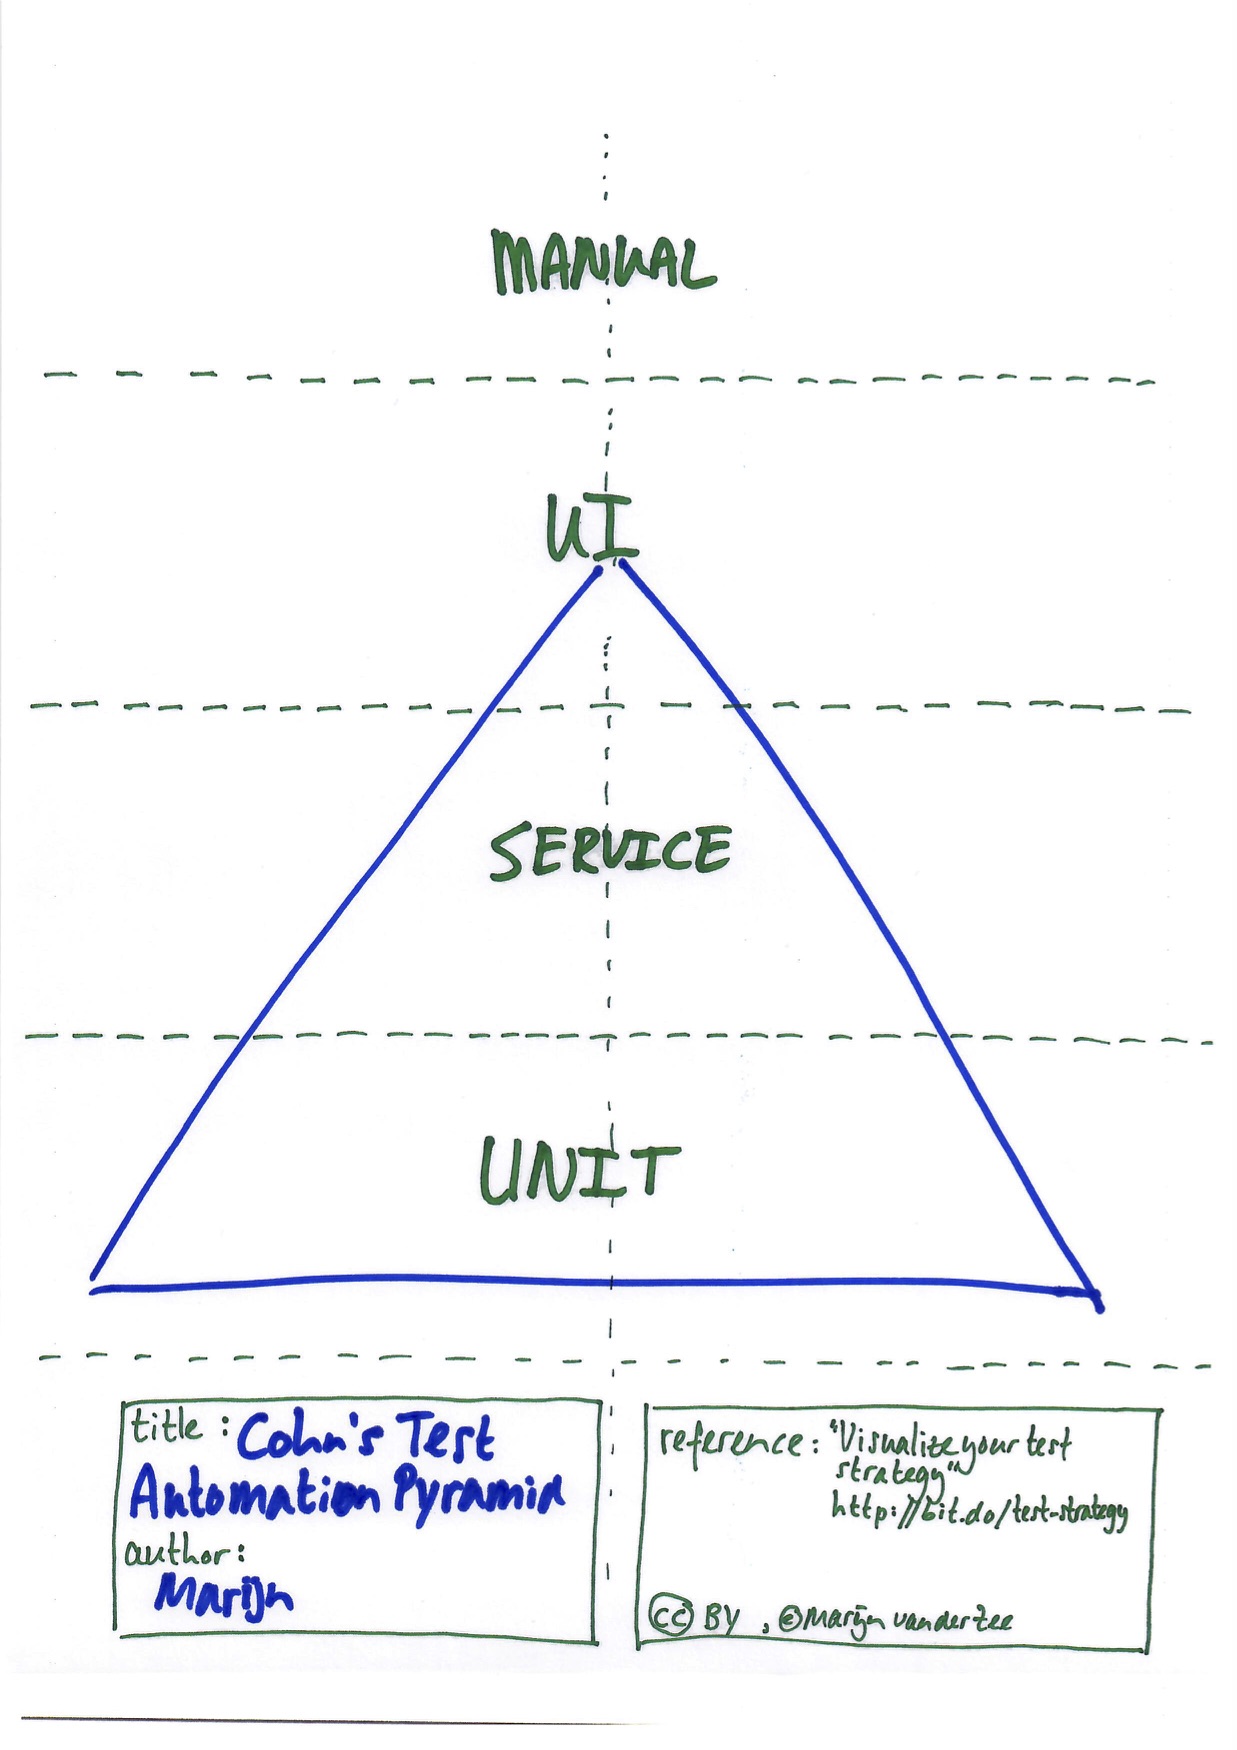 MANUAL
UI
SERVICE
UNIT
title : Cohn's Test
Automation Pyramid
author:
Marijn
reference: "Visualize your test
strategy"
http://bit.do/test-strategy
cc BY , @Marijn vanderzee